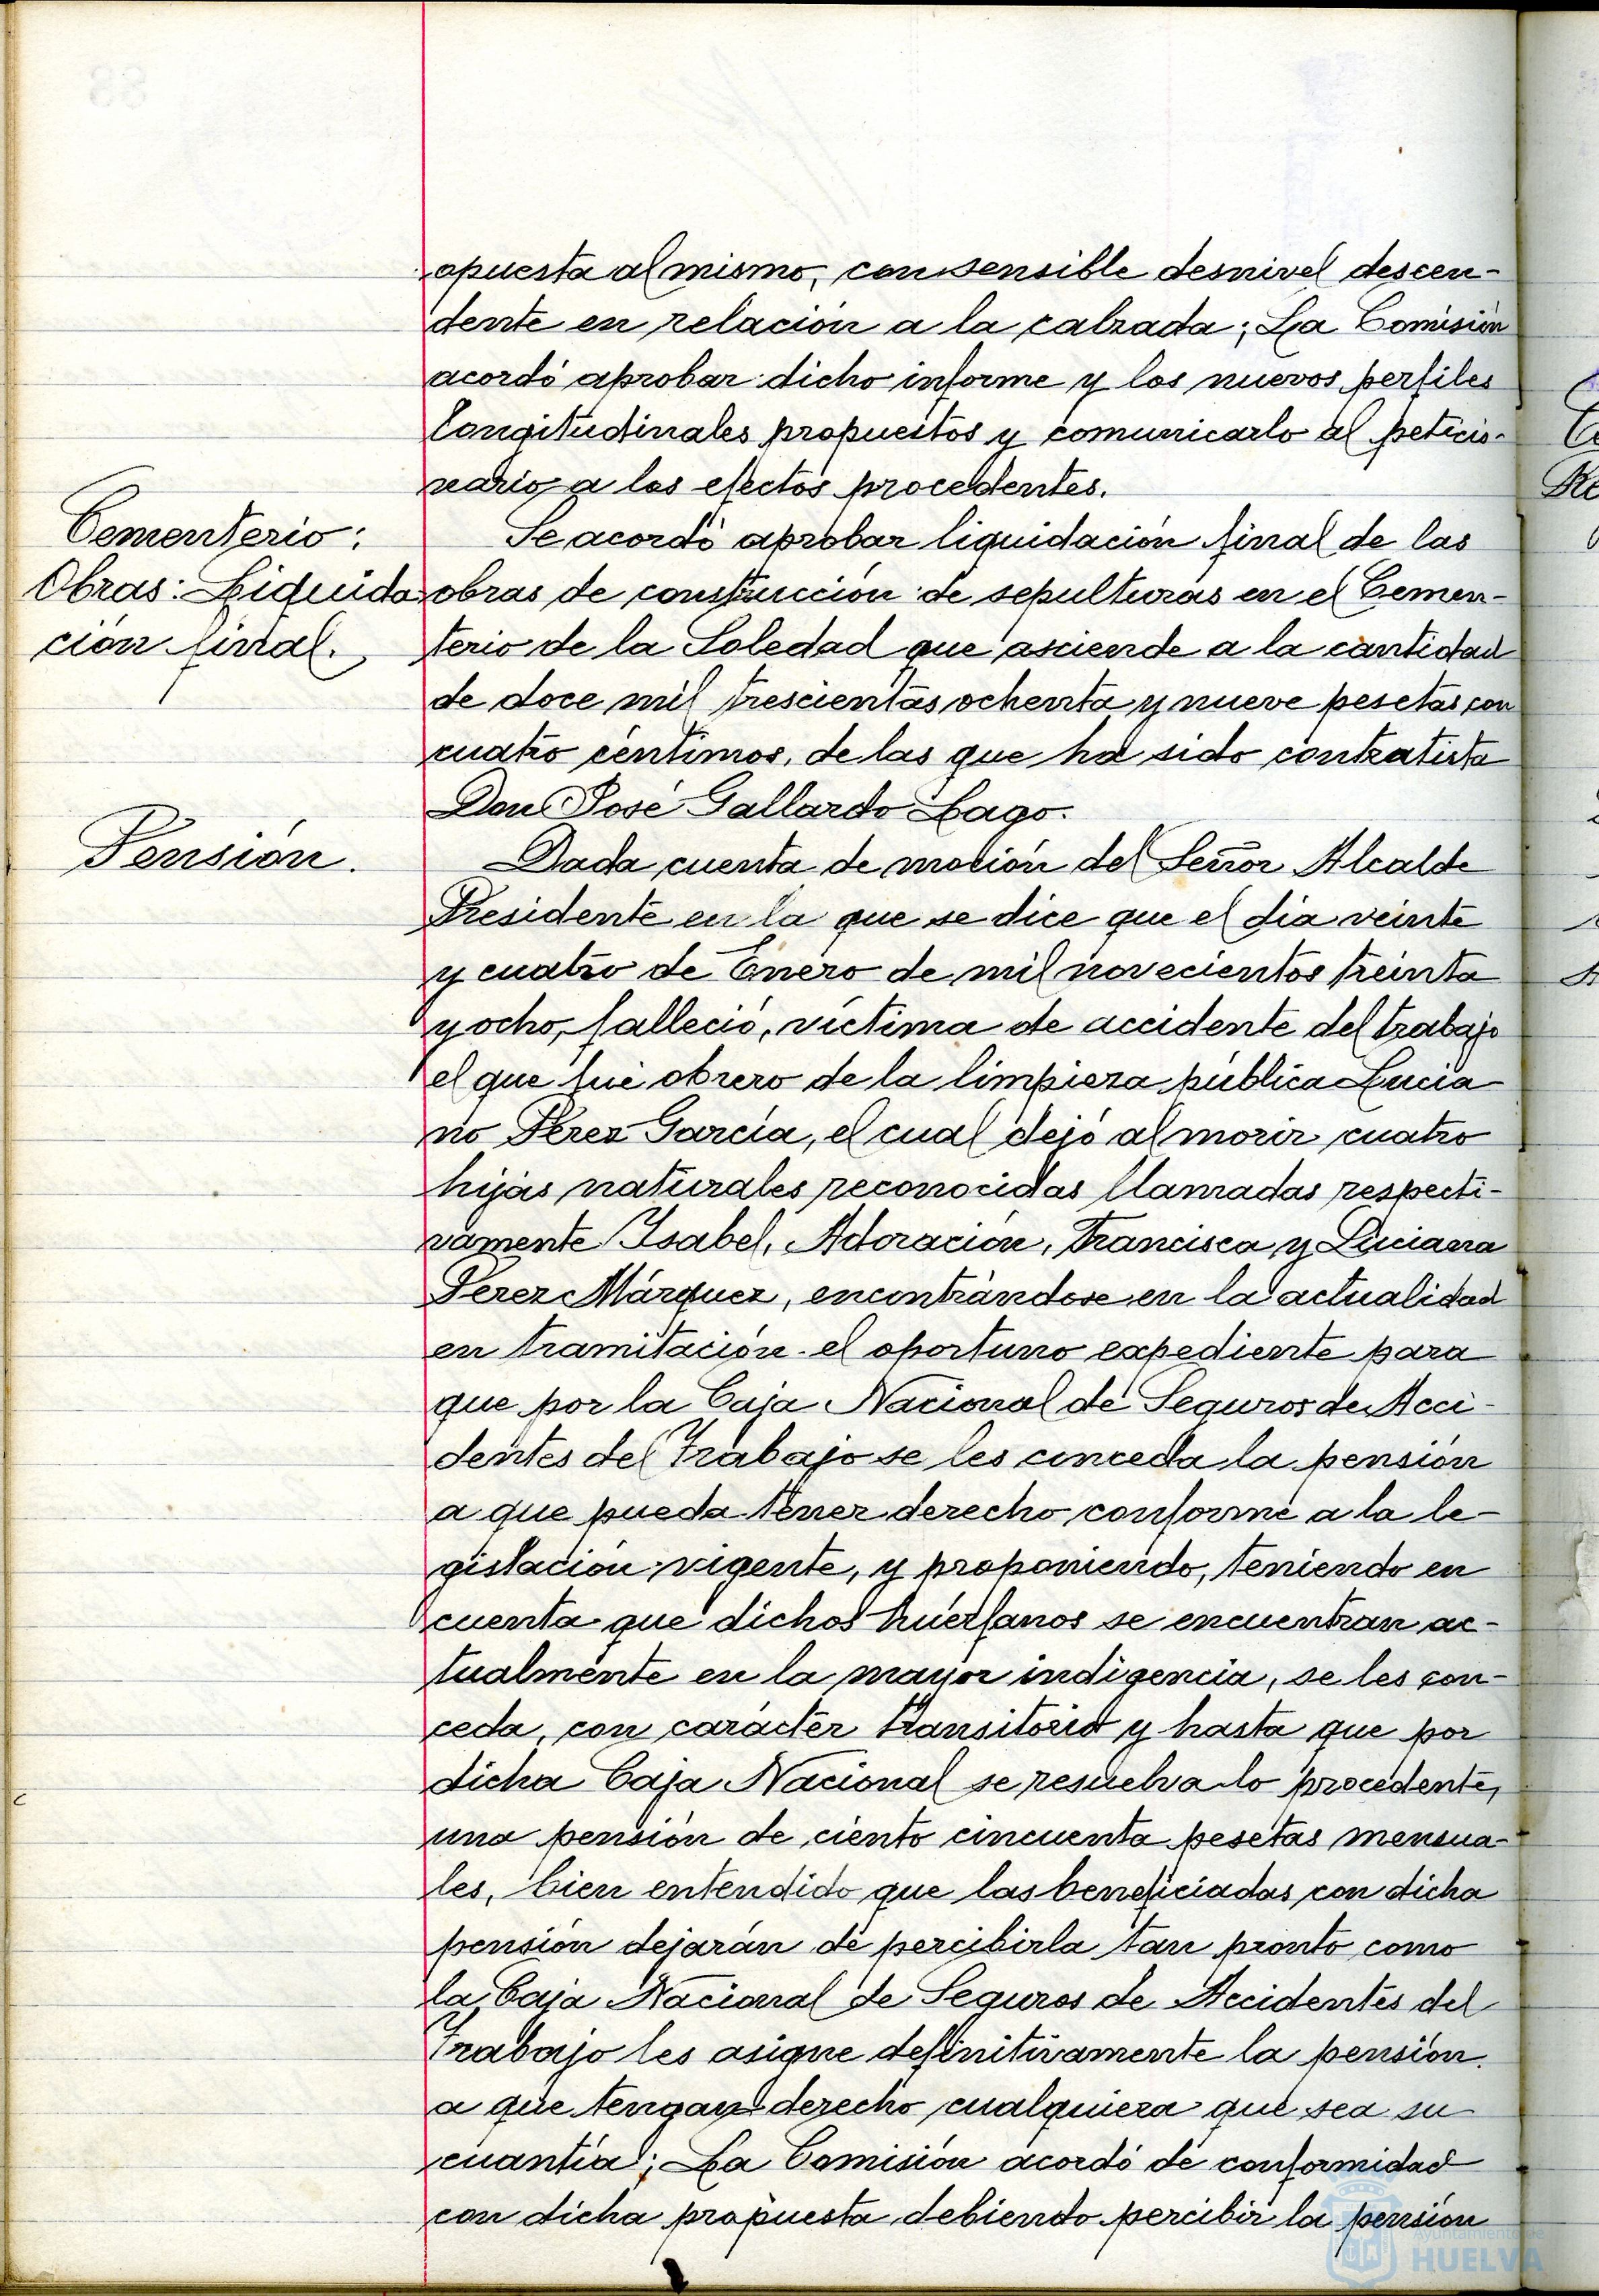 opuesta al mismo, con sensible desnivel descen-
dente en relación a la calzada; La Comisión
acordó aprobar dicho informe y los nuevos perfiles
longitudinales propuestos y comunicarlo al peticio-
nario a los efectos procedentes.
Cementerio:
Obras: Liquida
ción final.
Se acordó aprobar liquidación final de las
obras de construcción de sepulturas en el Cemen-
terio de la Soledad que asciende a la cantidad
de doce mil trescientas ochenta y nueve pesetas con
cuatro céntimos, de las que ha sido contratista
Don José Gallardo Lago.
Pensión.
Dada cuenta de moción del Señor Alcalde
Presidente en la que se dice que el día veinte
y cuatro de Enero de mil novecientos treinta
y ocho, falleció, víctima de accidente del trabajo
el que fué obrero de la limpieza pública Lucia
no Pérez García, el cual dejó al morir cuatro
hijas naturales reconocidas llamadas respecti-
vamente Isabel, Adoración, Francisca y Luciana
Perez Márquez, encontrándose en la actualidad
en tramitación el oportuno expediente para
que por la Caja Nacional de Seguros de Acci-
dentes del Trabajo se les conceda la pensión
a que pueda tener derecho conforme a la le-
gislación vigente, y proponiendo, teniendo en
cuenta que dichos huérfanos se encuentran ac-
tualmente en la mayor indigencia, se les con-
ceda, con carácter transitorio y hasta que por
dicha Caja Nacional se resuelva lo procedente,
una pensión de ciento cincuenta pesetas mensua-
les, bien entendido que las beneficiadas con dicha
pensión dejarán de percibirla tan pronto como
la Caja Nacional de Seguros de Accidentes del
Trabajo les asigne definitivamente la pensión
a que tengan derecho cualquiera que sea su
cuantía; La Comisión acordó de conformidad
con dicha propuesta debiendo percibir la pensión
Ayuntamiento de
HUELVA